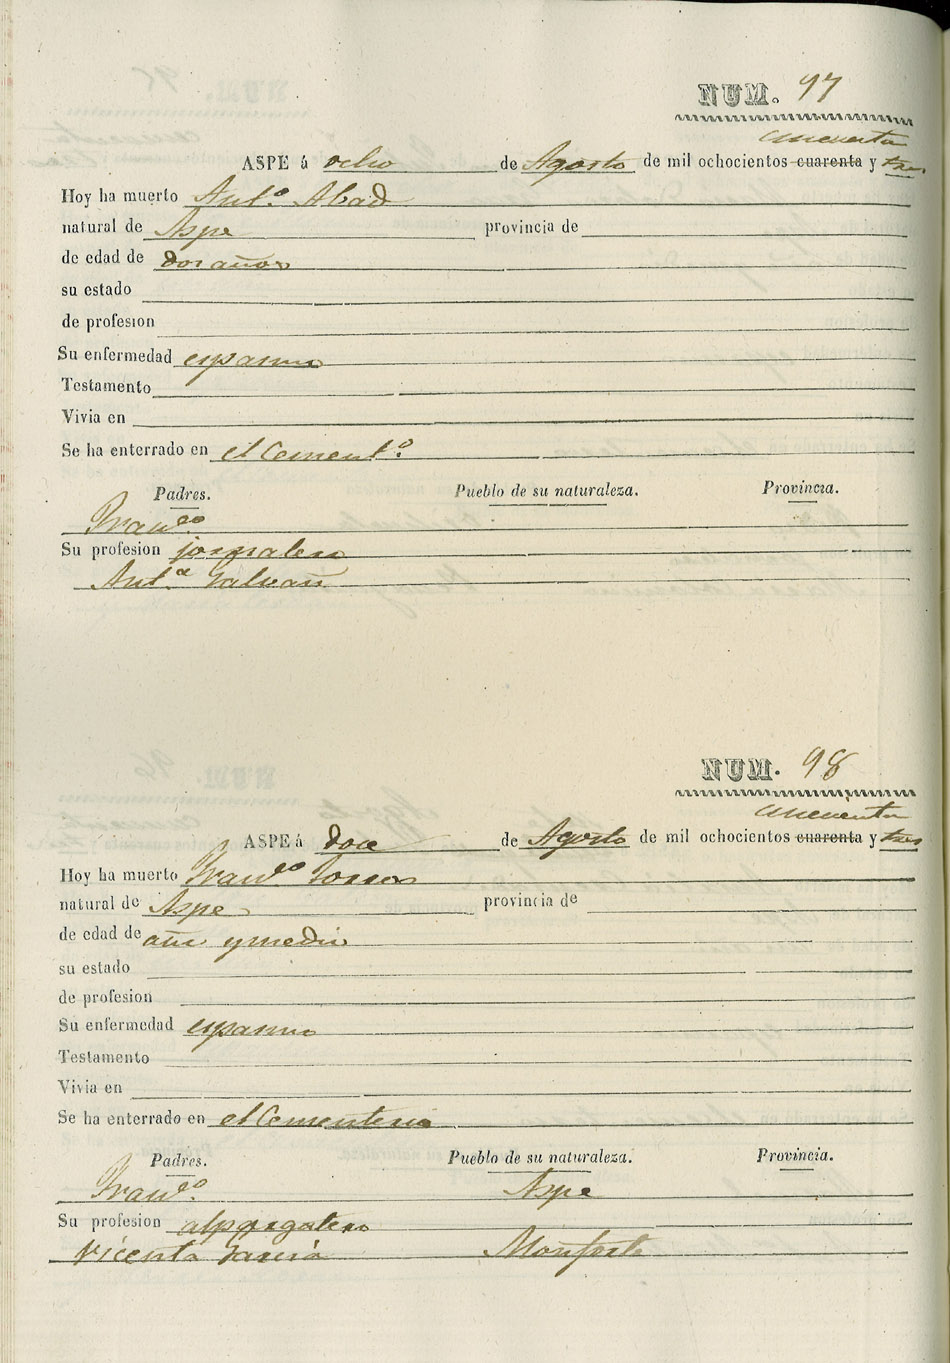 NUM. 97
cincuenta
ASPE á ocho de Agosto de mil ochocientos cuarenta y tres
Hoy ha muerto Ant.º Abad
natural de Aspe provincia de
de edad de dos años
su estado
de profesion
Su enfermedad espasmo
Testamento
Vivia en
Se ha enterrado en el Cement.º
Padres. Pueblo de su naturaleza. Provincia.
Fran.co
Su profesion jornalero
Ant.ª Galvañ
NUM. 98
cincuenta
ASPE á doce de Agosto de mil ochocientos cuarenta y tres
Hoy ha muerto Fran.co
natural de Aspe provincia de
de edad de año y medio
su estado
de profesion
Su enfermedad espasmo
Testamento
Vivia en
Se ha enterrado en el Cementerio
Padres. Pueblo de su naturaleza. Provincia.
Fran.co Aspe
Su profesion alpargatero
Vicenta Garcia Monforte